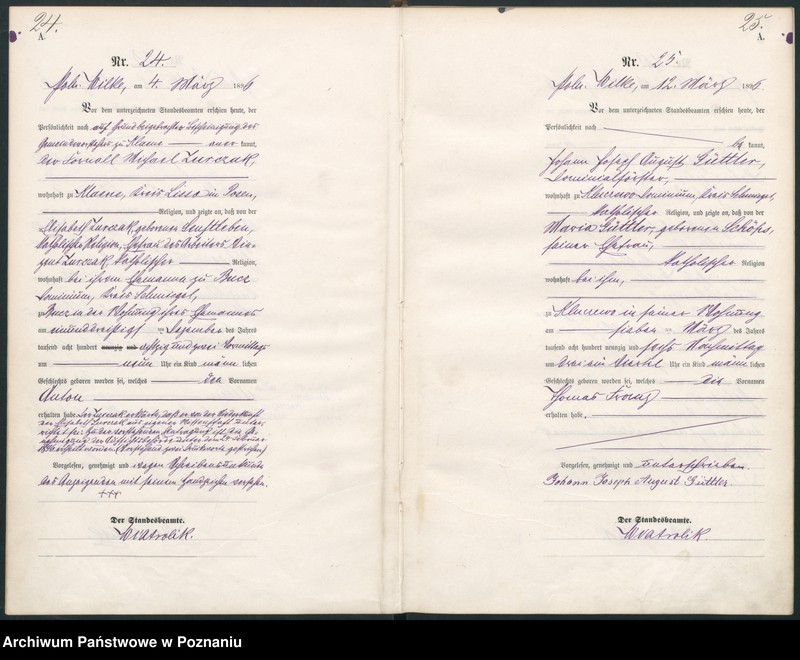 24.
A.
Nr. 24.
Poln. Wilke, am 4. März 1896
Vor dem unterzeichneten Standesbeamten erschien heute, der
Persönlichkeit nach auf Grund beigebrachter Bescheinigung des
Gemeindevorstehers zu Kloene anerkannt,
der Michael Zurczak,
wohnhaft zu Kloene, Kreis Lissa in Posen,
Religion, und zeigte an, daß von der
Elisabeth Zurczak, geborenen Senftleben,
katholischer Religion, Ehefrau des Arbeiters Vin-
zent Zurczak katholischer Religion,
wohnhaft bei ihrem Ehemanne zu Bucz
Dominium, Kreis Schmiegel,
zu Bucz in der Wohnung ihres Ehemannes
am einunddreißigsten Dezember des Jahres
tausend acht hundert neunzig und achtzig und zwei Vormittags
um neun Uhr ein Kind männlichen
Geschlechts geboren worden sei, welches den Vornamen
Anton
erhalten habe. Der Zurczak erklärte, daß er von der Niederkunft
der Elisabeth Zurczak aus eigener Wissenschaft unter-
richtet sei.
Vorgelesen, genehmigt und wegen Schreibensunkunde
des Anzeigenden mit seinem Handzeichen versehen.
+++
Der Standesbeamte.
Kwatrolik.
25.
A.
Nr. 25.
Poln. Wilke, am 12. März 1896.
Vor dem unterzeichneten Standesbeamten erschien heute, der
Persönlichkeit nach
be kannt,
Johann Josef August Güttler,
Dominialförster,
wohnhaft zu Kluczewo Dominium, Kreis Schmiegel,
katholischer Religion, und zeigte an, daß von der
Maria Güttler, geborenen Schöps,
seiner Ehefrau,
katholischer Religion,
wohnhaft bei ihm,
zu Kluczewo in seiner Wohnung
am sieben ten März des Jahres
tausend acht hundert neunzig und sechs Nachmittag
um drei ein Viertel Uhr ein Kind männlichen
Geschlechts geboren worden sei, welches die Vornamen
Thomas Franz
erhalten habe.
Vorgelesen, genehmigt und unterschrieben.
Johann Joseph August Güttler.
Der Standesbeamte.
Kwatrolik.
Archiwum Państwowe w Poznaniu